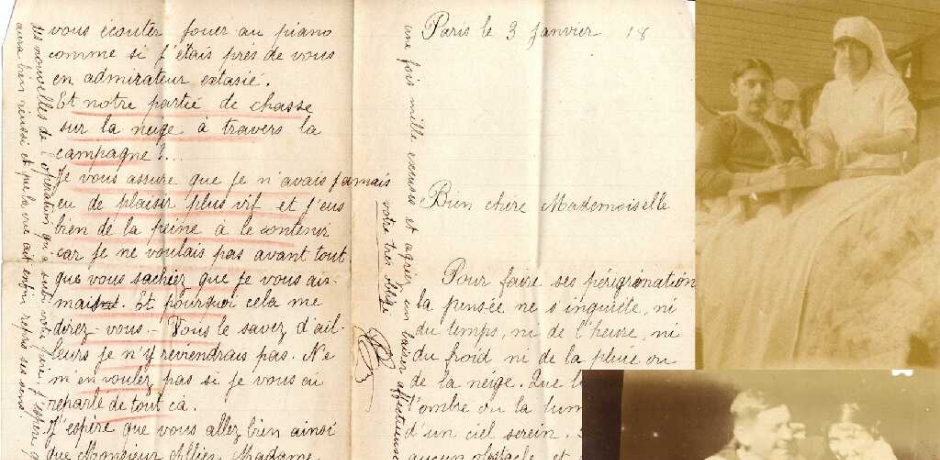 Paris le 3 janvier 18
Bien chère Mademoiselle
Pour faire ses pérégrination
la pensée ne s'inquiète, ni
du temps, ni de l'heure, ni
du froid ni de la pluie ou
de la neige. Que l
l'ombre ou la lum
d'un ciel serein.
aucun obstacle et
vous écouter jouer au piano
comme si j'étais près de vous
en admirateur extasié.
Et notre partie de chasse
sur la neige à travers la
campagne ?...
Je vous assure que je n'avais jamais
eu de plaisir plus vif et j'eus
bien de la peine à le contenir
car je ne voulais pas avant tout
que vous sachiez que je vous ai-
mais. Et pourquoi cela me
direz-vous - Vous le savez d'ail-
leurs je n'y reviendrais pas. Ne
m'en voulez pas si je vous ai
reparlé de tout cà.
J'espère que vous allez bien ainsi
que Monsieur Allier, Madame
des nouvelles de l'opération qu'a subi votre père. J'espère q
aura bien réussi et que la vue ait enfin repris ses sens
une fois mille excuses et agréer un baiser affectueux
votre très